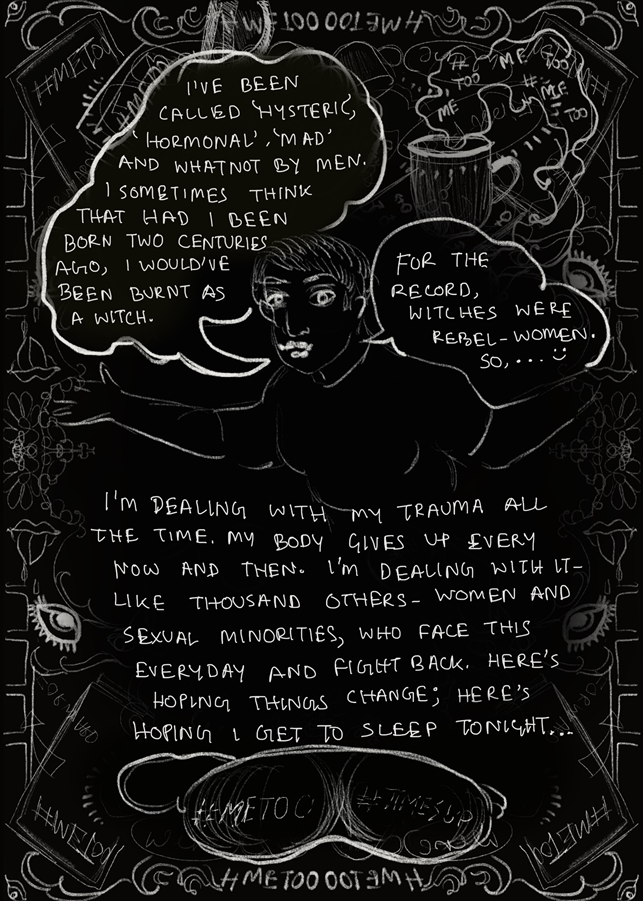 #METOO OOTEM#
#METOO
#METOO
#
ME
TOO
TOO
#
ME
ME
TOO
I'VE BEEN
CALLED 'HYSTERIC',
'HORMONAL', 'MAD'
AND WHATNOT BY MEN.
I SOMETIMES THINK
THAT HAD I BEEN
BORN TWO CENTURIES
AGO, I WOULD'VE
BEEN BURNT AS
A WITCH.
FOR THE
RECORD,
WITCHES WERE
REBEL-WOMEN.
SO,... :)
I'M DEALING WITH MY TRAUMA ALL
THE TIME. MY BODY GIVES UP EVERY
NOW AND THEN. I'M DEALING WITH IT-
LIKE THOUSAND OTHERS- WOMEN AND
SEXUAL MINORITIES, WHO FACE THIS
EVERYDAY AND FIGHT BACK. HERE'S
HOPING THINGS CHANGE; HERE'S
HOPING I GET TO SLEEP TONIGHT...
#METOO #TIMESUP
#METOO
#METOO
#METOO OOTEM#